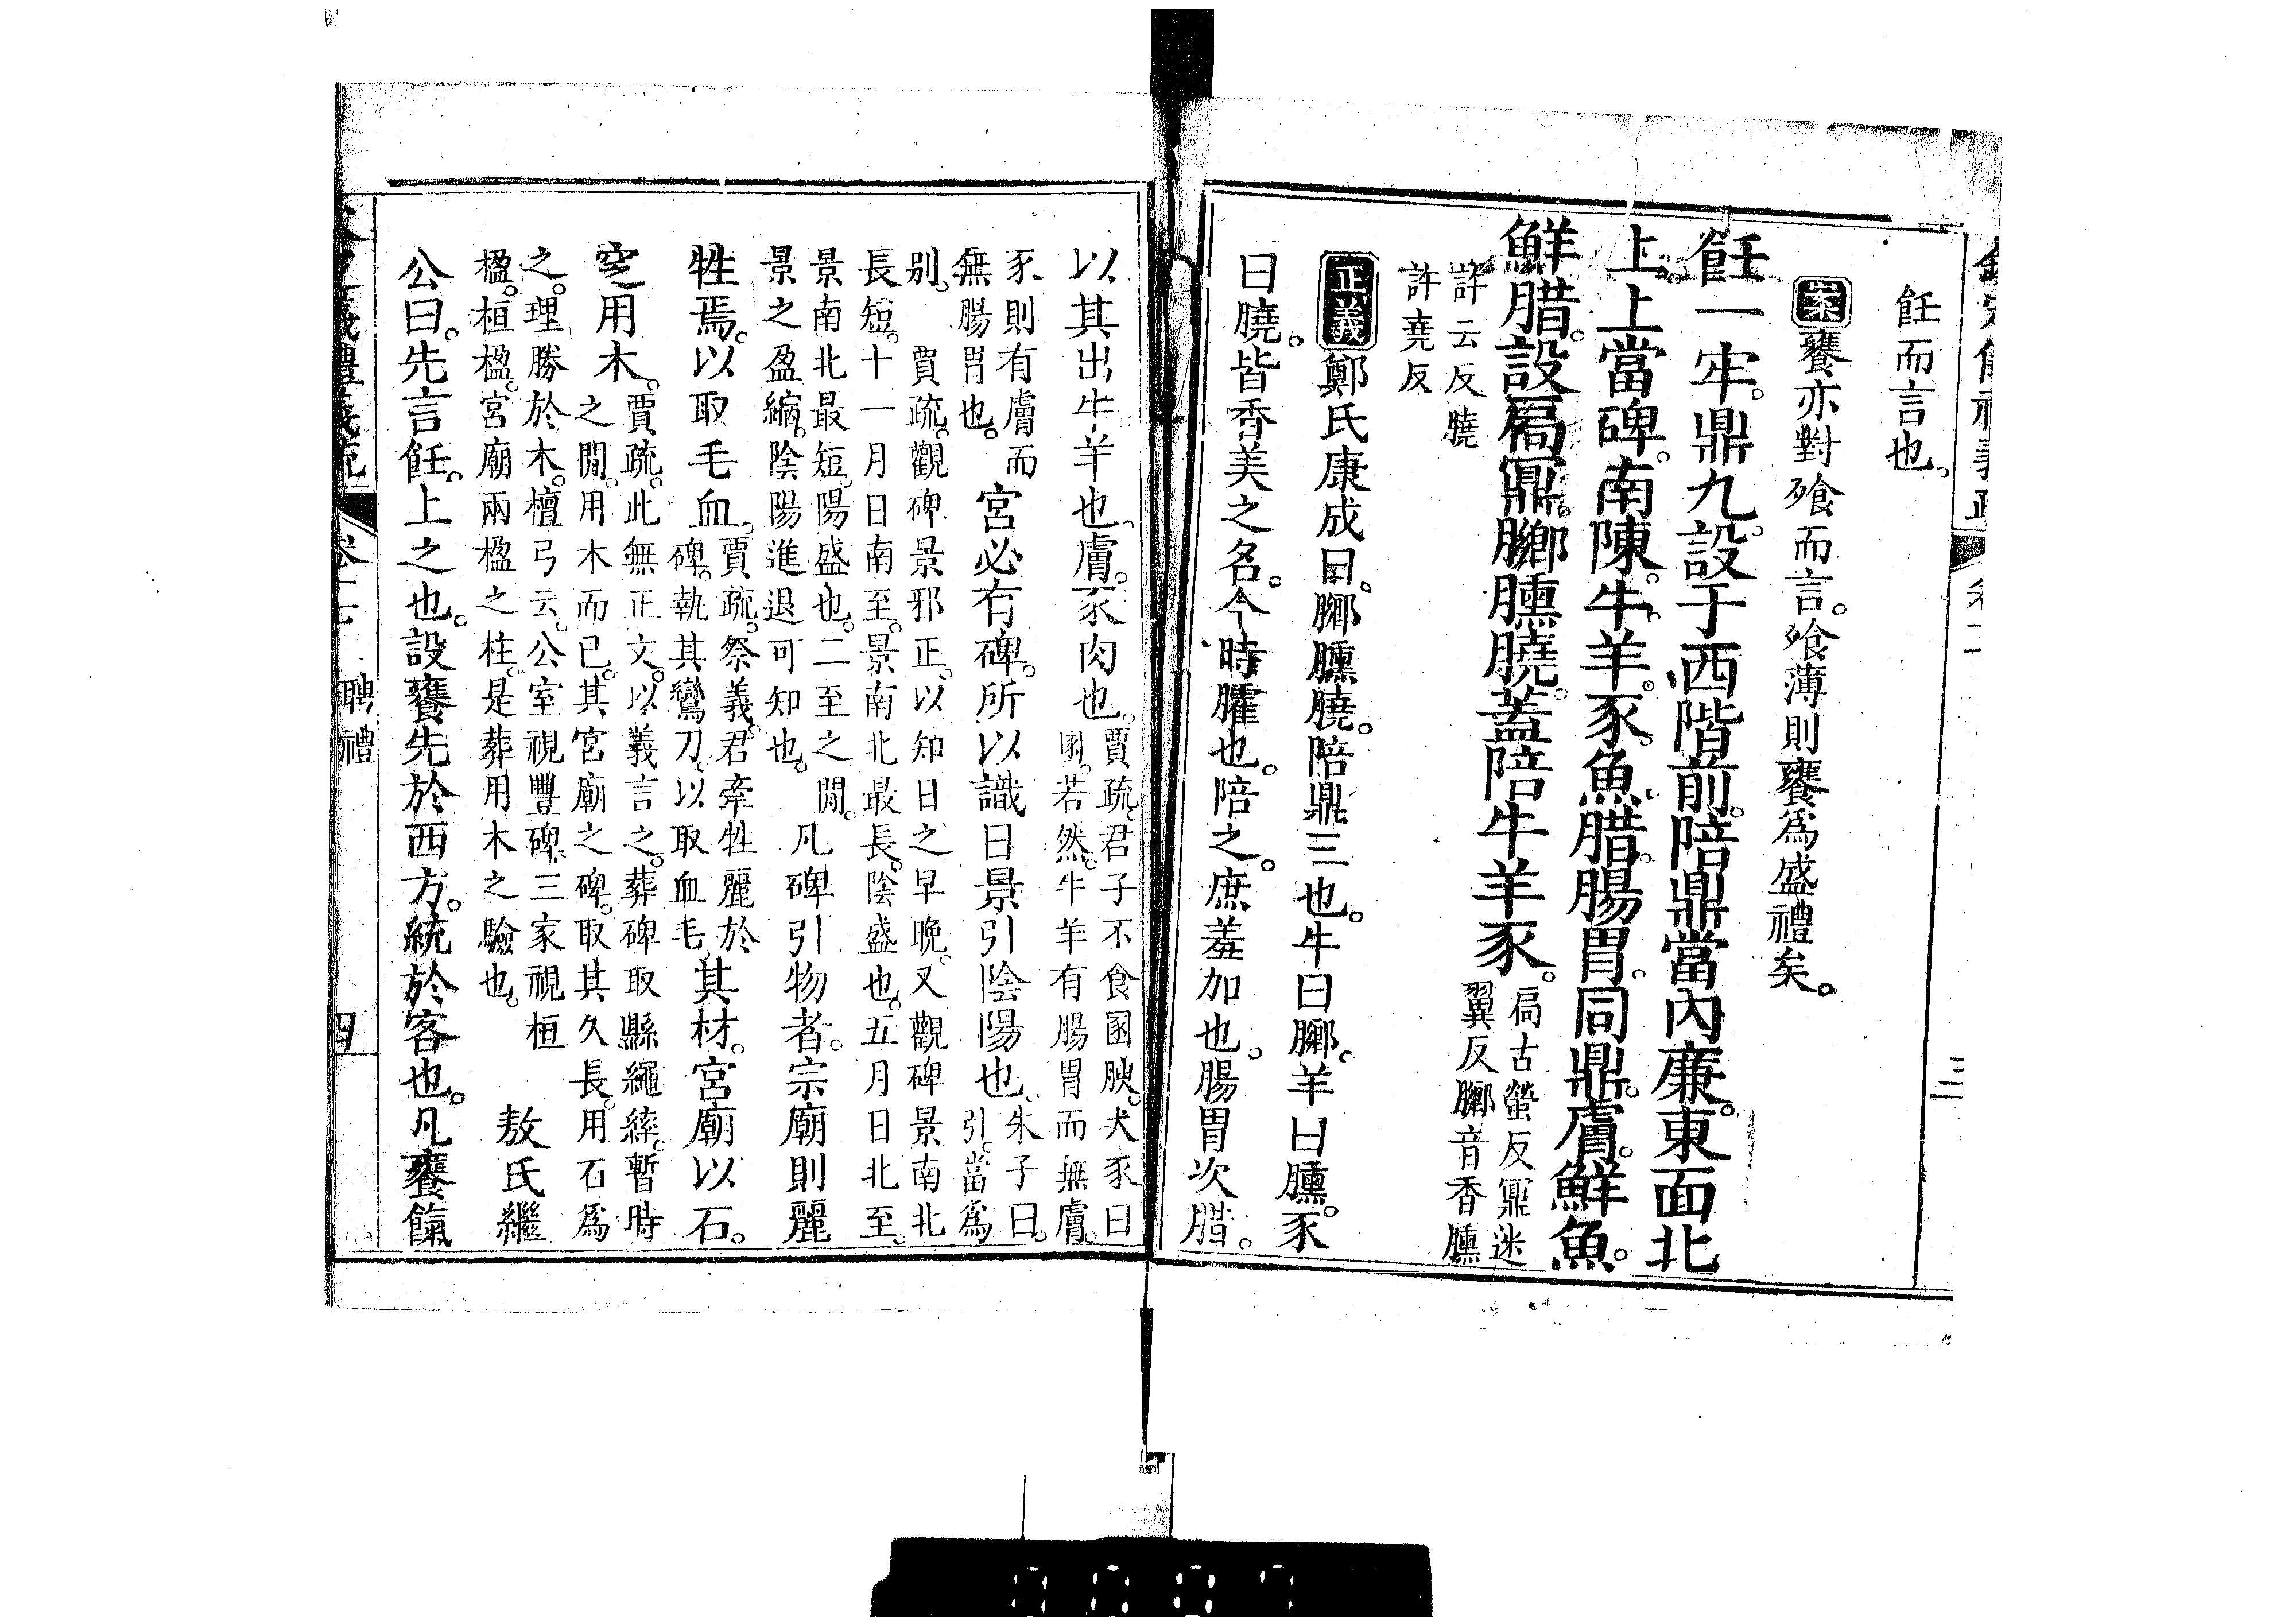 飪而言也。
案饔亦對飧而言。飧薄則饔爲盛禮矣。
飪一牢。鼎九。設于西階前。陪鼎當內廉。東面北
上。上當碑。南陳。牛。羊。豕。魚。腊。腸胃。同鼎。膚。鮮魚。
鮮腊。設扃鼏。臐膮。蓋陪牛羊豕。
扃古螢反鼏迷
翼反膷音香臐
許云反膮
許堯反
正義鄭氏康成曰。膷臐膮。陪鼎三也。牛曰膷。羊曰臐。豕
曰膮。皆香美之名。今時臛也。陪之。庶羞加也。腸胃次腊。
以其出牛羊也。膚。豕肉也。
賈疏。君子不食圂腴。犬豕曰
圂。若然。牛羊有腸胃而無膚。
豕則有膚而
無腸胃也。
宮必有碑。所以識日景引陰陽也。
朱子曰。
引。當爲
別。
賈疏。觀碑景邪正。以知日之早晚。又觀碑景南北
長短。十一月日南至。景南北最長。陰盛也。五月日北至。
景南北最短。陽盛也。二至之閒。
景之盈縮。陰陽進退可知也。
凡碑引物者。宗廟則麗
牲焉。以取毛血。
賈疏。祭義。君牽牲麗於
碑。執其鸞刀。以取血毛。
其材。宮廟以石。
窆用木。
賈疏。此無正文。以義言之。葬碑取縣繩繂。暫時
之閒。用木而已。其宮廟之碑。取其久長。用石爲
之。理勝於木。檀弓云。公室視豐碑。三家視桓
楹。桓楹。宮廟兩楹之柱。是葬用木之驗也。
敖氏繼
公曰。先言飪。上之也。設饔先於西方。統於客也。凡饔餼
聘禮
四
三